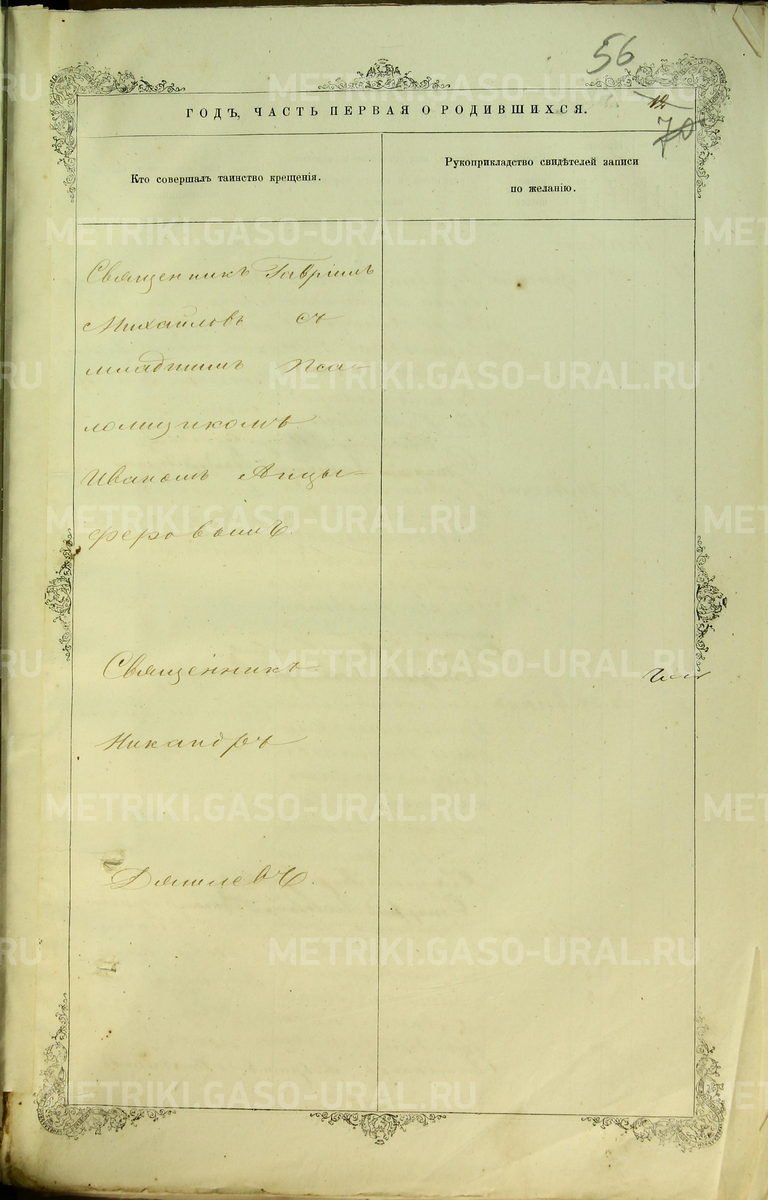 56
ГОДЪ, ЧАСТЬ ПЕРВАЯ О РОДИВШИХСЯ.
12
70
Кто совершалъ таинство крещенія.
Рукоприкладство свидѣтелей записи
по желанію.
Священникъ Гавріилъ
Михайловъ съ
младшимъ Пса-
ломщикомъ
Иваномъ Анцы-
феровымъ.
Священникъ
Никандръ
METRIKI.GASO-URAL.RU